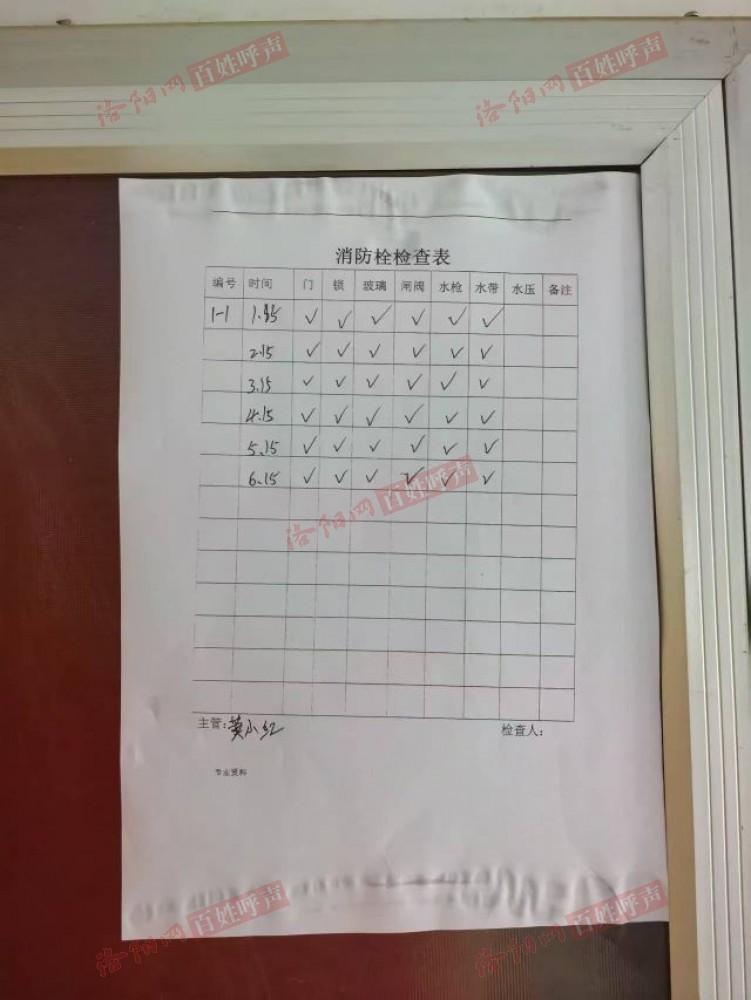 洛阳网 百姓呼声 洛阳网 百姓呼声
消防栓检查表
编号 时间 门 锁 玻璃 闸阀 水枪 水带 水压 备注
1-1 ✓ ✓ ✓ ✓ ✓ ✓
2.15 ✓ ✓ ✓ ✓ ✓ ✓
3.15 ✓ ✓ ✓ ✓ ✓ ✓
4.15 ✓ ✓ ✓ ✓ ✓ ✓
5.15 ✓ ✓ ✓ ✓ ✓ ✓
6.15 ✓ ✓ ✓ ✓ ✓ ✓
洛阳网 百姓呼声
主管：黄小红 检查人：
专业资料
洛阳网 百姓呼声 洛阳网 百姓呼声